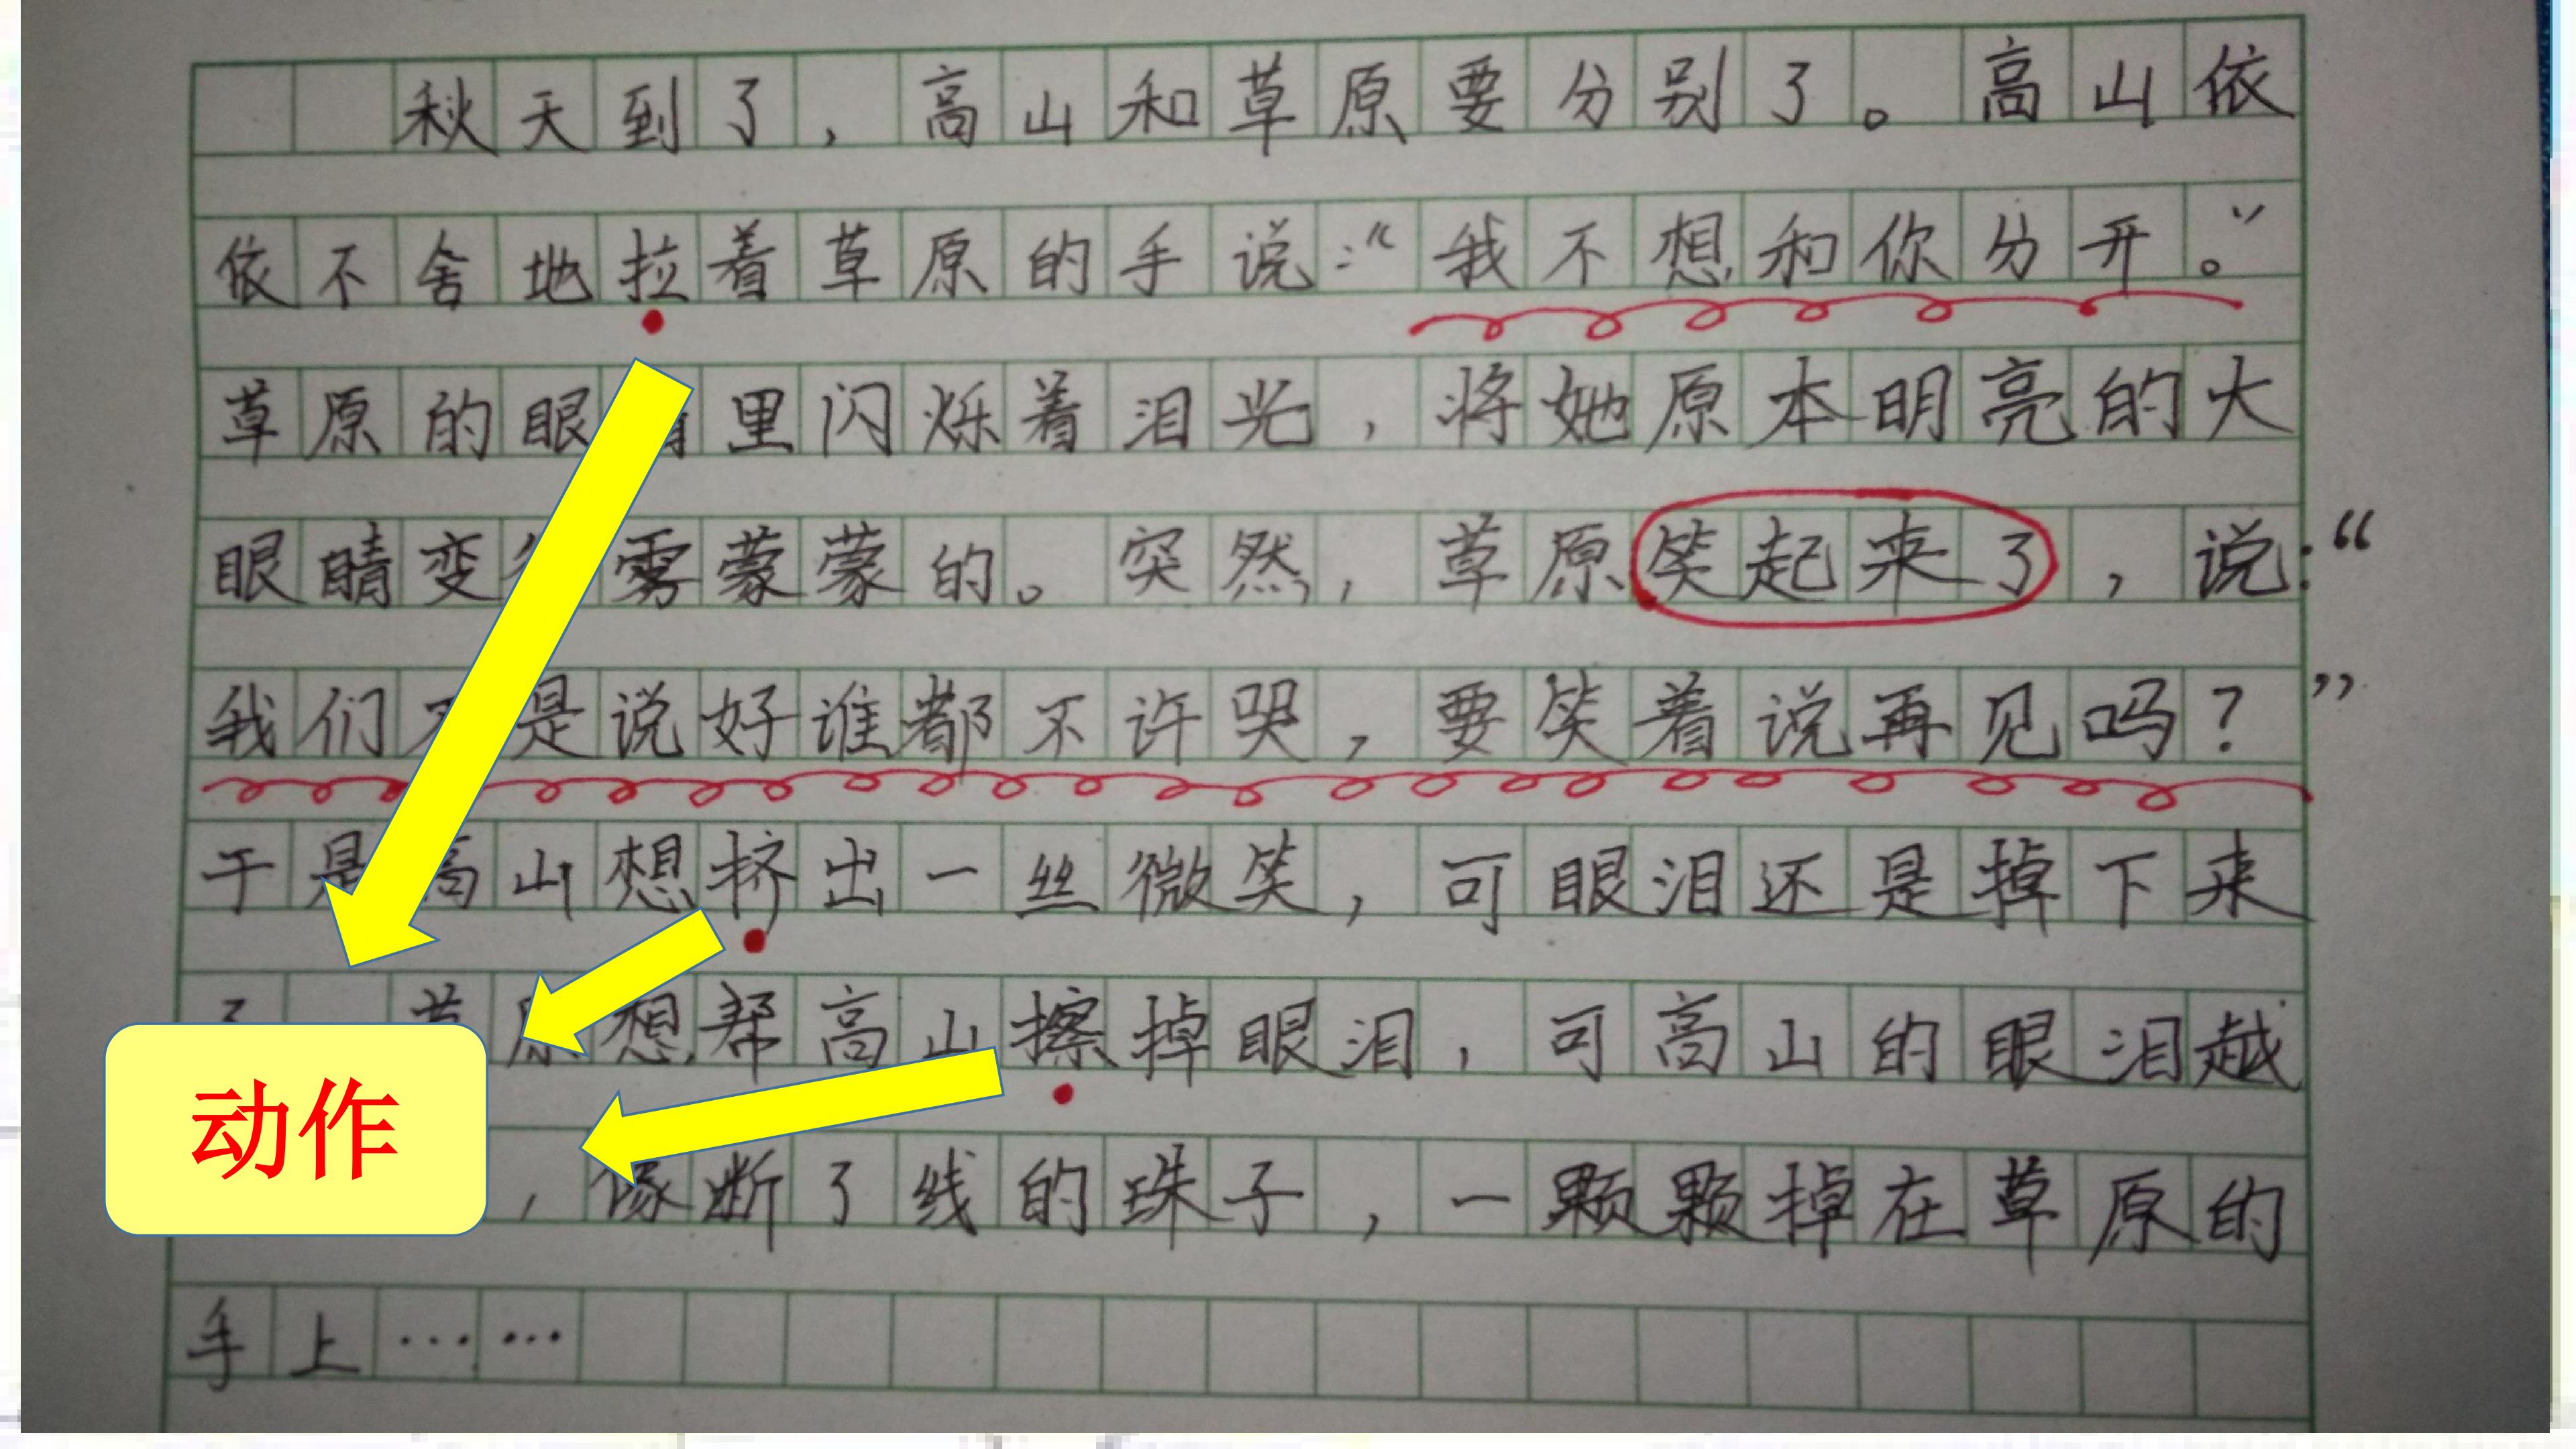 秋天到了,高山和草原要分别了。高山依
依不舍地拉着草原的手说:“我不想和你分开。”
草原的眼里闪烁着泪光,将她原本明亮的大
眼睛变雾蒙蒙的。突然,草原笑起来了,说:“
我们是说好谁都不许哭,要笑着说再见吗?”
于是高山想挤出一丝微笑,可眼泪还是掉下来
了草原想帮高山擦掉眼泪,可高山的眼泪越
动作
,像断了线的珠子,一颗颗掉在草原的
手上……